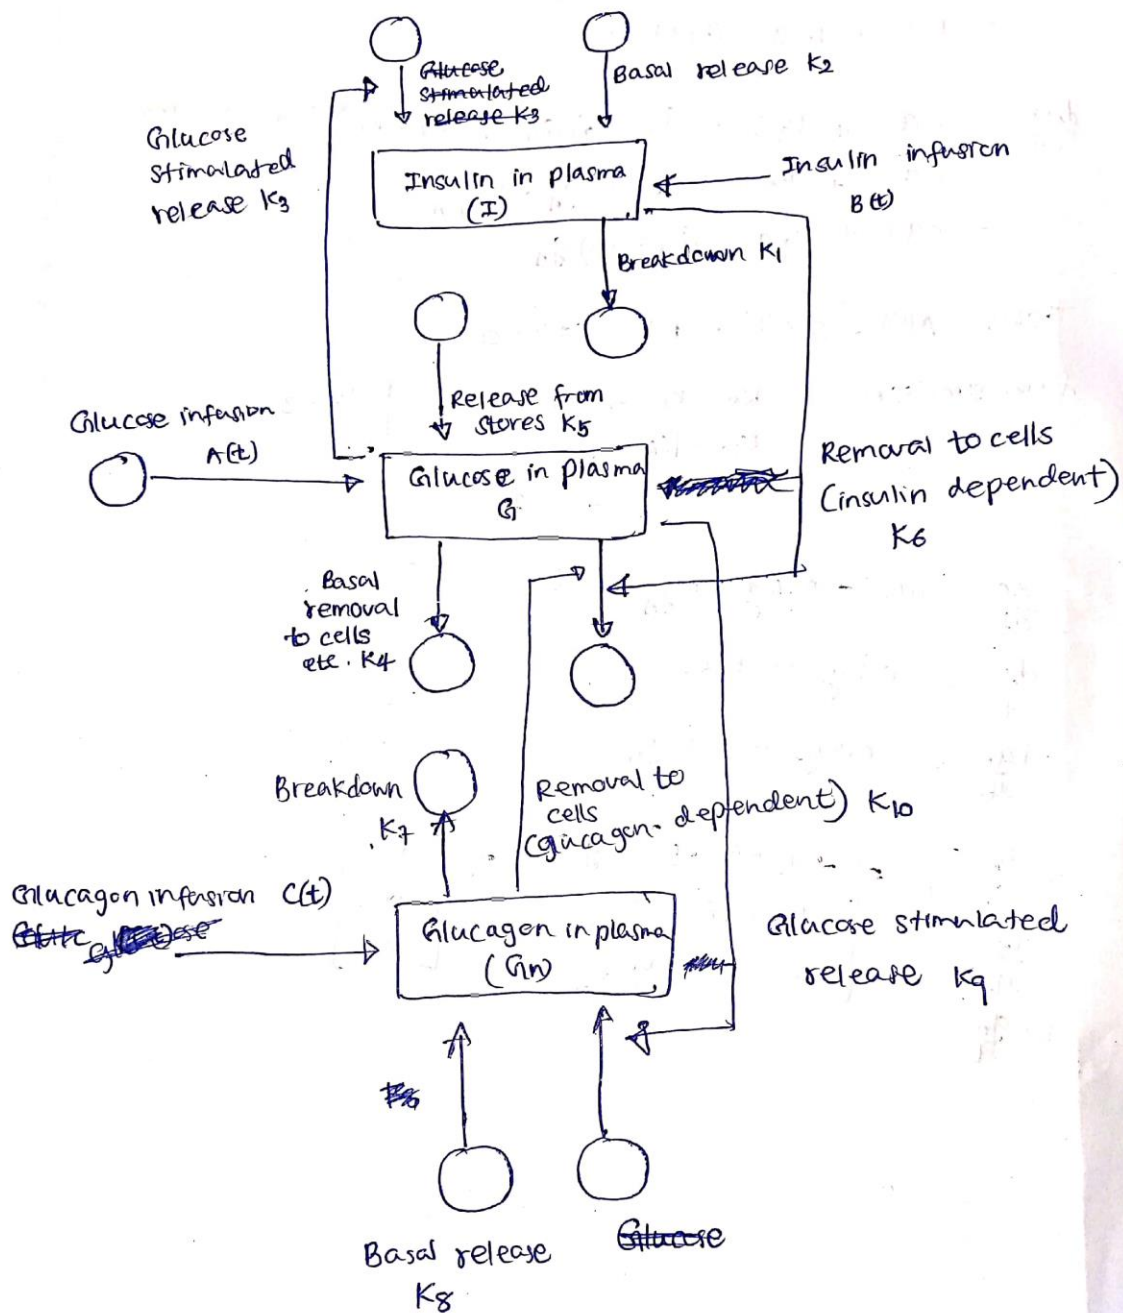 Glucose
stimulated
release K3
Basal release K2
Glucose
stimulated
release K3
Insulin in plasma
(I)
Insulin infusion
B(t)
Breakdown K1
Release from
stores K5
Glucose infusion
A(t)
Glucose in plasma
G
Removal to cells
(insulin dependent)
K6
Basal
removal
to cells
etc. K4
Breakdown
K7
Removal to
cells
(glucagon- dependent) K10
Glucagon infusion C(t)
Glucagon in plasma
(Gn)
Glucose stimulated
release K9
Basal release
K8
Glucose